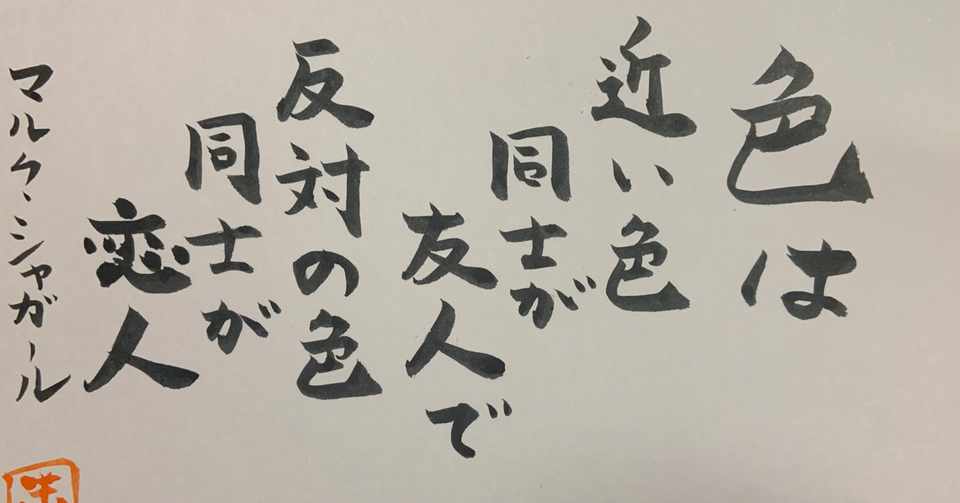 色は
近い色
同士が
友人で
反対の色
同士が
恋人
マルク・シャガール